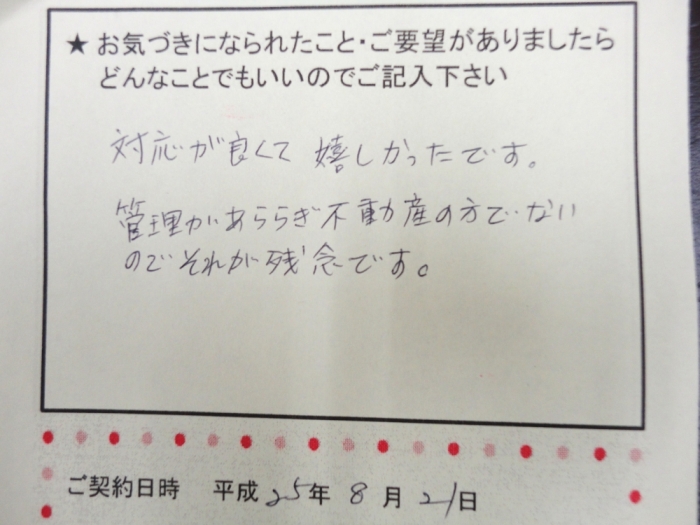 ★お気づきになられたこと・ご要望がありましたら
どんなことでもいいのでご記入下さい
対応が良くて 嬉しかったです。
管理があららぎ不動産の方でない
のでそれが残念です。
ご契約日時 平成25年8月21日